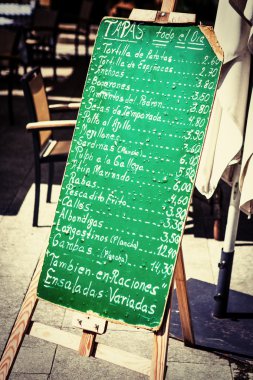 TAPAS todo el Día
Tortilla de Patatas 2.60
Tortilla de Espinacas 2.70
Anchoas
Boquerones 3.50
Pimientos del Padrón 3.80
Setas de Temporada 4.80
Pollo al Ajillo 3.50
Mejillones
Sardinas (Plancha)
Pulpo a la Gallega
Atún Marinado
Rabas 6.00
Pescadito Frito
Calles
Albóndigas 3.50
Langostinos (Plancha) 12.90
Gambas (Plancha) 14.30
"También en Raciones"
Ensaladas Variadas